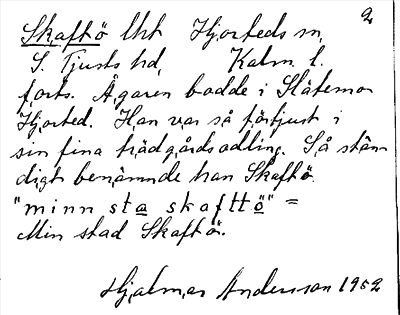 2
Skaftö lht Hjorteds sn,
S. Tjusts hd, Kalm. l.
forts. Ägaren bodde i Slätemon
Hjorted. Han var så förtjust i
sin fina trädgårdsodling. Så stän-
digt benämnde han Skaftö.
"minn sta skafttö" =
Min stad Skaftö.
Hjalmar Andersson 1952